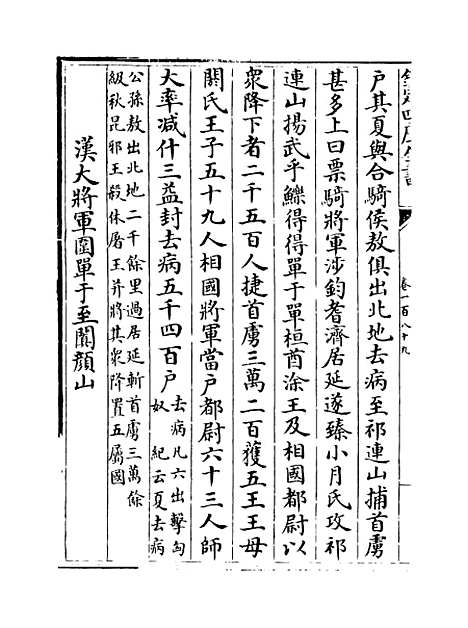 户其夏與合騎侯敖俱出北地去病至祁連山捕首虜
甚多上曰票騎將軍涉鈞耆濟居延遂臻小月氏攻祁
連山揚武乎鱳得得單于單桓酋涂王及相國都尉以
衆降下者二千五百人捷首虜三萬二百獲五王王母
閼氏王子五十九人相國將軍當户都尉六十三人師
大率減什三益封去病五千四百户
去病凡六出擊匈
奴 紀云夏去病
公孫敖出北地二千餘里過居延斬首虜三萬餘
級秋昆邪王殺休屠王并將其衆降置五屬國
漢大將軍圍單于至闐顔山
欽定四庫全書
卷一百八十九